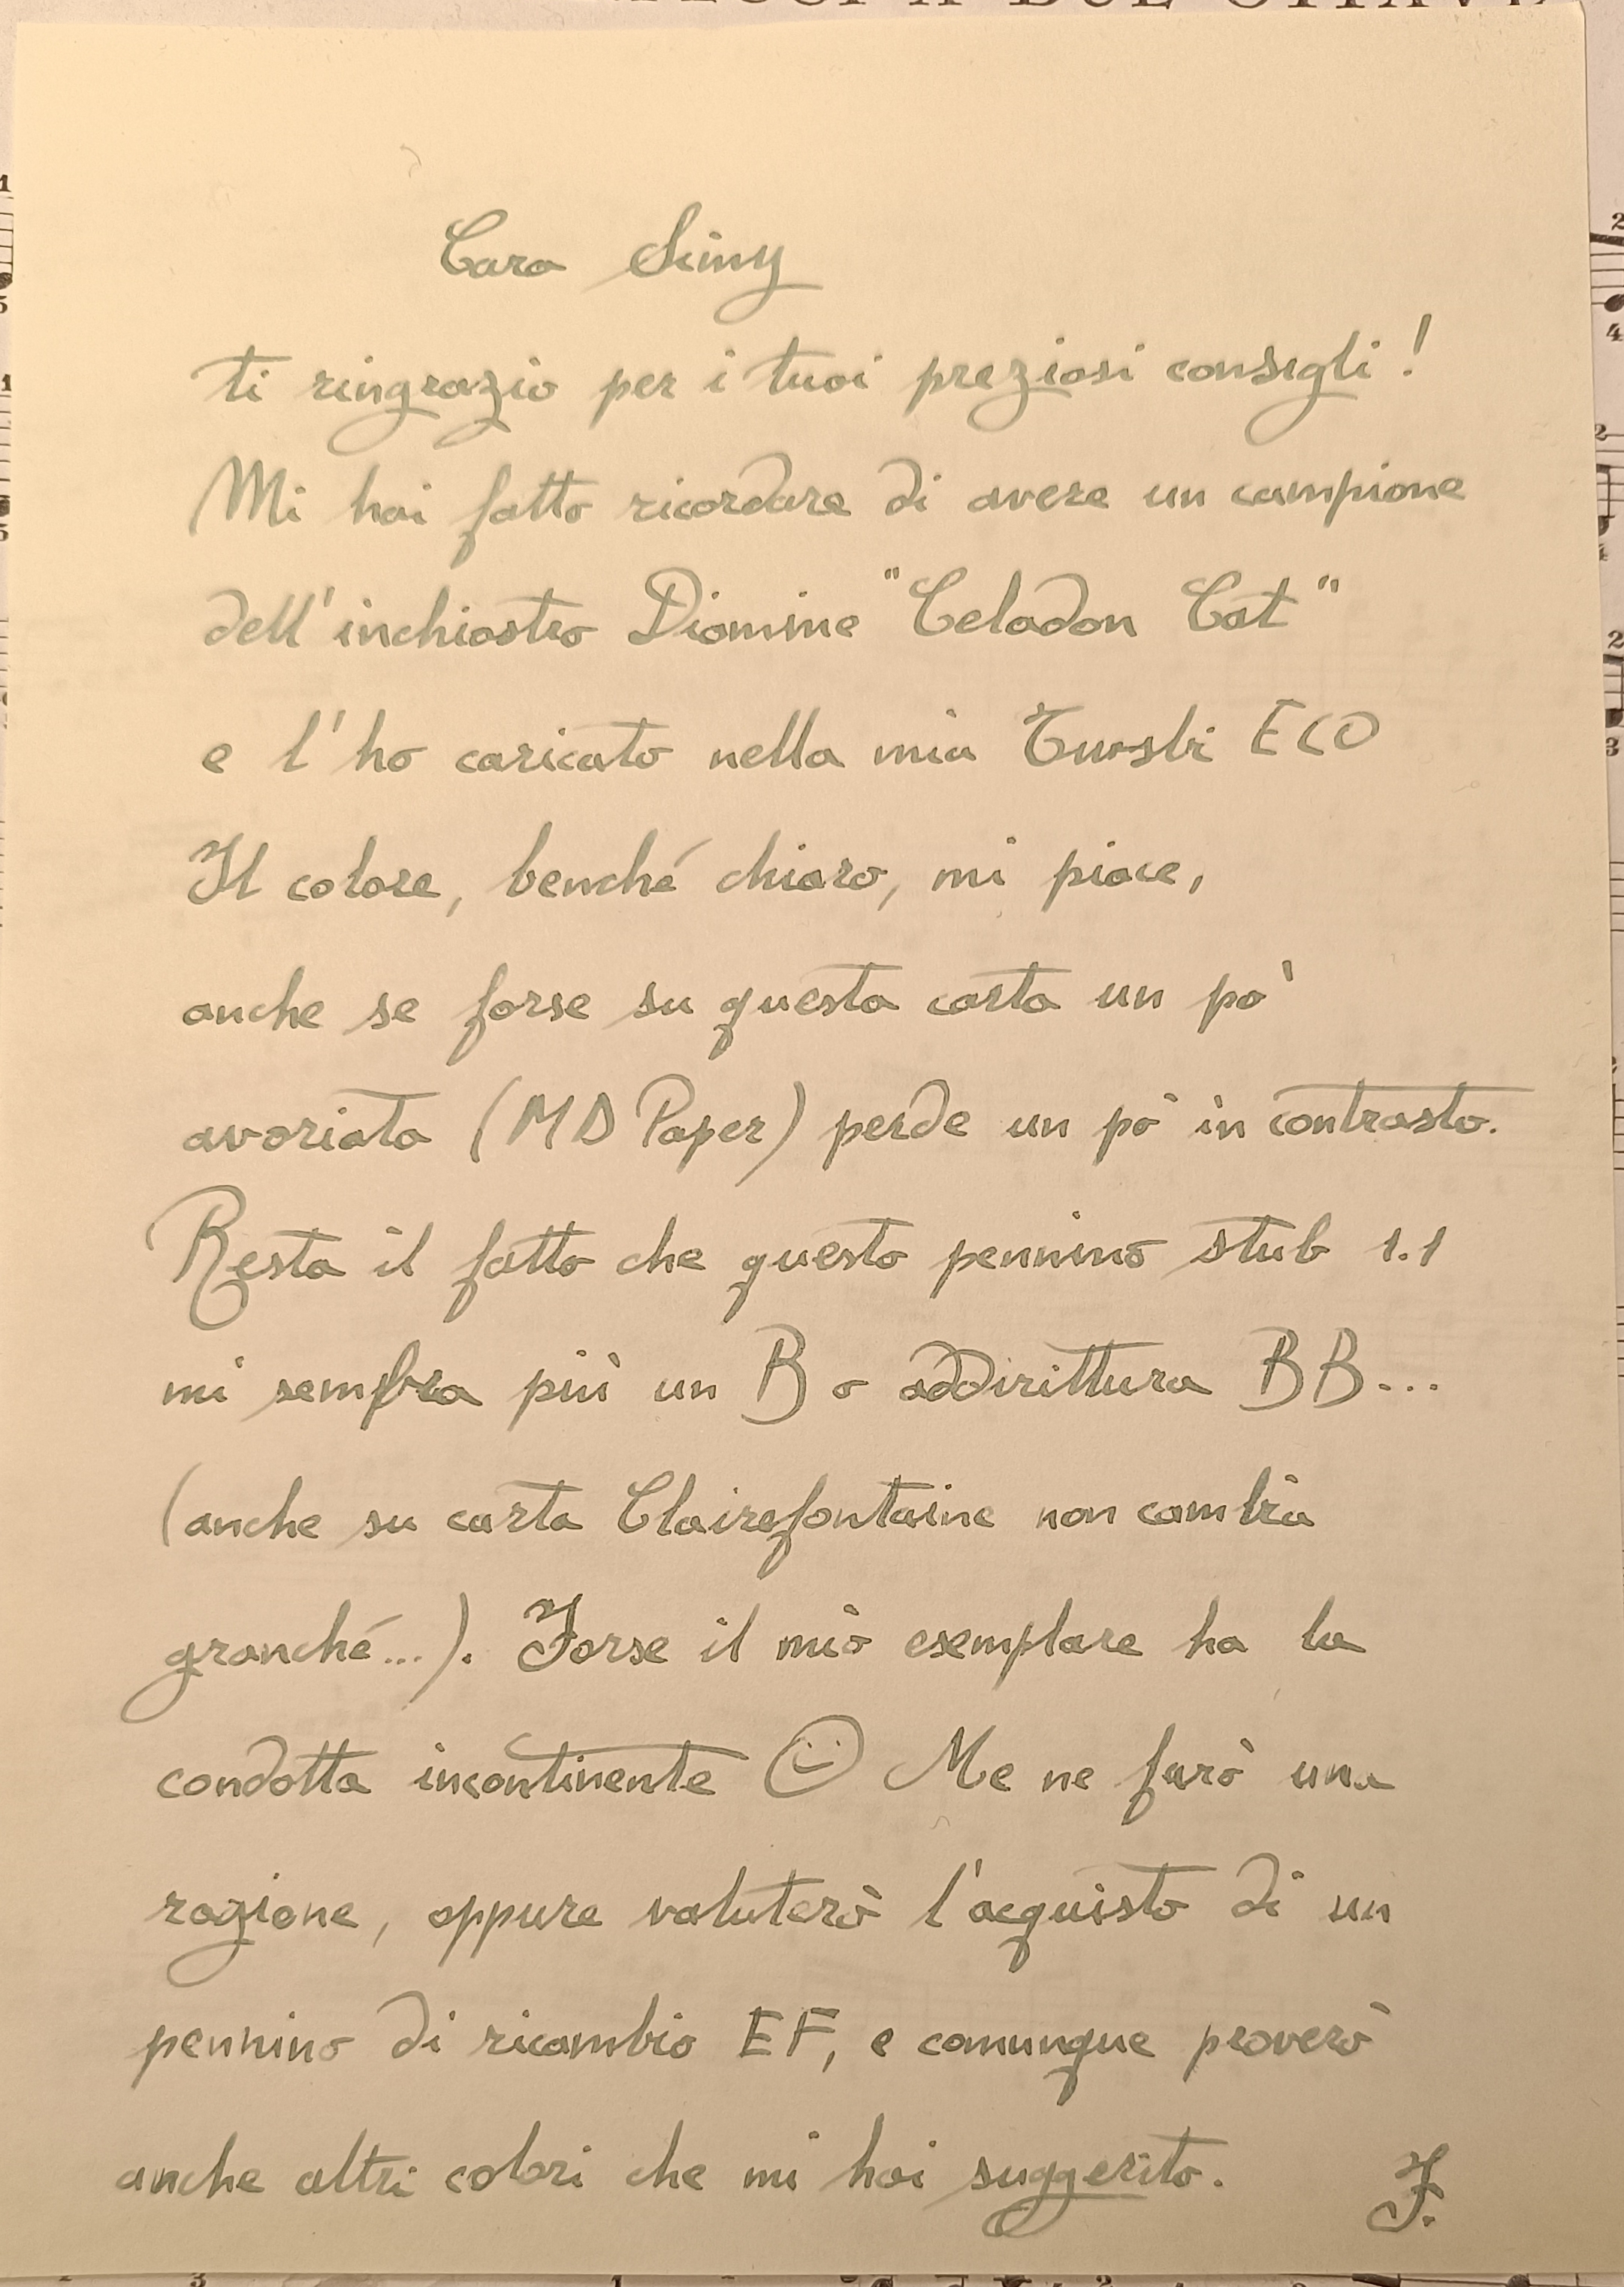 Cara Simy
ti ringrazio per i tuoi preziosi consigli!
Mi hai fatto ricordare di avere un campione
dell'inchiostro Diamine "Celadon Cat"
e l'ho caricato nella mia Twsbi ECO
Il colore, benché chiaro, mi piace,
anche se forse su questa carta un po'
avoriata (MD Paper) perde un po' in contrasto.
Resta il fatto che questo pennino stub 1.1
mi sembra più un B o addirittura BB...
(anche su carta Clairefontaine non cambia
granché...). Forse il mio esemplare ha la
condotta incontinente ☺ Me ne farò una
ragione, oppure valuterò l'acquisto di un
pennino di ricambio EF, e comunque proverò
anche altri colori che mi hai suggerito. F.